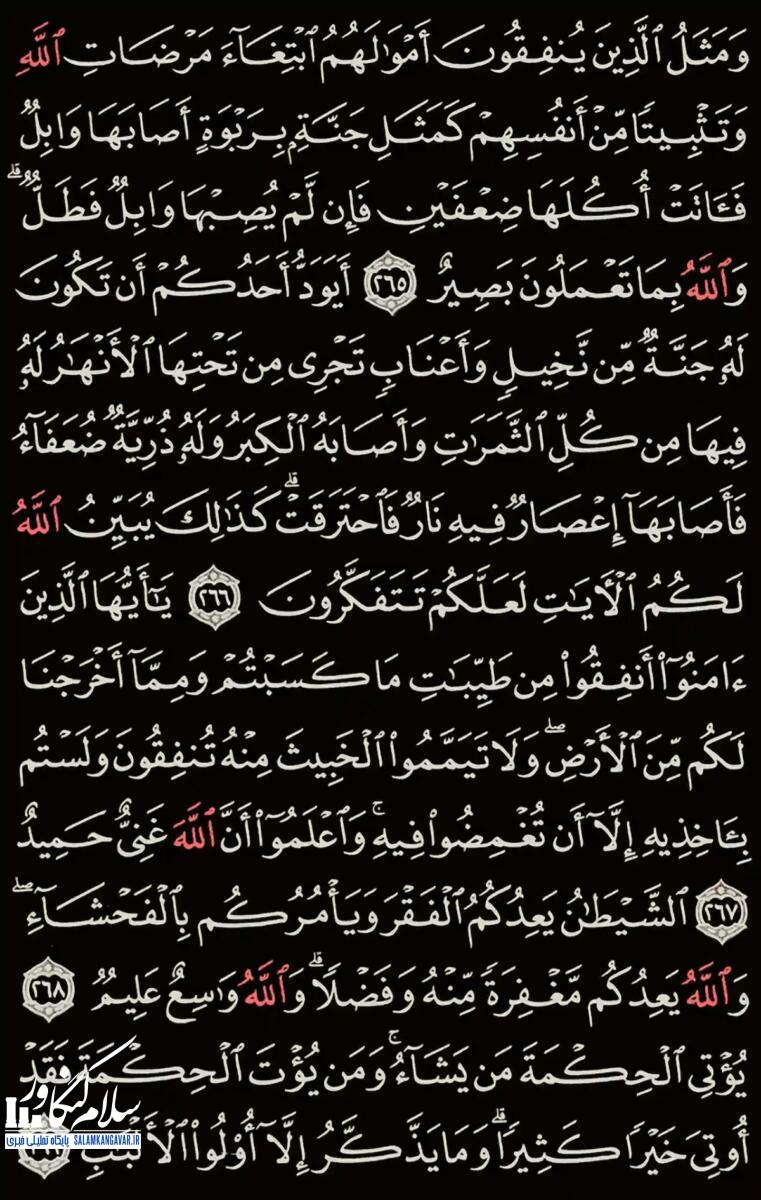 وَمَثَلُ ٱلَّذِينَ يُنفِقُونَ أَمْوَٰلَهُمُ ٱبْتِغَآءَ مَرْضَاتِ ٱللَّهِ
وَتَثْبِيتًا مِّنْ أَنفُسِهِمْ كَمَثَلِ جَنَّةٍۭ بِرَبْوَةٍ أَصَابَهَا وَابِلٌ
فَـَٔاتَتْ أُكُلَهَا ضِعْفَيْنِ فَإِن لَّمْ يُصِبْهَا وَابِلٌ فَطَلٌّ ۗ
وَٱللَّهُ بِمَا تَعْمَلُونَ بَصِيرٌ ٢٦٥ أَيَوَدُّ أَحَدُكُمْ أَن تَكُونَ
لَهُۥ جَنَّةٌ مِّن نَّخِيلٍ وَأَعْنَابٍ تَجْرِى مِن تَحْتِهَا ٱلْأَنْهَٰرُ لَهُۥ
فِيهَا مِن كُلِّ ٱلثَّمَرَٰتِ وَأَصَابَهُ ٱلْكِبَرُ وَلَهُۥ ذُرِّيَّةٌ ضُعَفَآءُ
فَأَصَابَهَآ إِعْصَارٌ فِيهِ نَارٌ فَٱحْتَرَقَتْ ۗ كَذَٰلِكَ يُبَيِّنُ ٱللَّهُ
لَكُمُ ٱلْـَٔايَٰتِ لَعَلَّكُمْ تَتَفَكَّرُونَ ٢٦٦ يَٰٓأَيُّهَا ٱلَّذِينَ
ءَامَنُوٓا۟ أَنفِقُوا۟ مِن طَيِّبَٰتِ مَا كَسَبْتُمْ وَمِمَّآ أَخْرَجْنَا
لَكُم مِّنَ ٱلْأَرْضِ ۖ وَلَا تَيَمَّمُوا۟ ٱلْخَبِيثَ مِنْهُ تُنفِقُونَ وَلَسْتُم
بِـَٔاخِذِيهِ إِلَّآ أَن تُغْمِضُوا۟ فِيهِ ۚ وَٱعْلَمُوٓا۟ أَنَّ ٱللَّهَ غَنِىٌّ حَمِيدٌ
٢٦٧ ٱلشَّيْطَٰنُ يَعِدُكُمُ ٱلْفَقْرَ وَيَأْمُرُكُم بِٱلْفَحْشَآءِ ۖ
وَٱللَّهُ يَعِدُكُم مَّغْفِرَةً مِّنْهُ وَفَضْلًا ۗ وَٱللَّهُ وَٰسِعٌ عَلِيمٌ ٢٦٨
يُؤْتِى ٱلْحِكْمَةَ مَن يَشَآءُ ۚ وَمَن يُؤْتَ ٱلْحِكْمَةَ فَقَدْ
أُوتِىَ خَيْرًا كَثِيرًا ۗ وَمَا يَذَّكَّرُ إِلَّآ أُو۟لُوا۟ ٱلْأَلْبَٰبِ
سلام کنگاور
پایگاه تحلیلی خبری SALAMKANGAVAR.IR